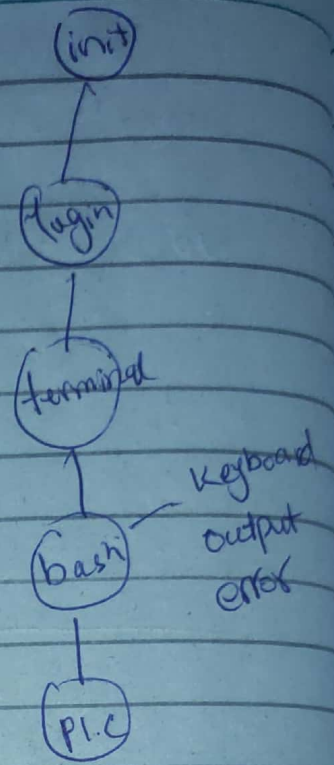 init
login
terminal
bash
Keyboard
output
error
P1.C